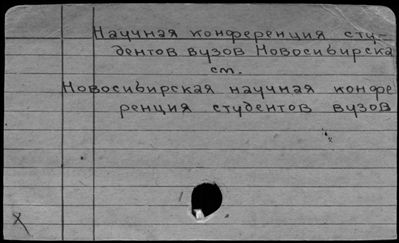 Научная конференция сту-
дентов вузов Новосибирска
см.
Новосибирская научная конфе
ренция студентов вузов